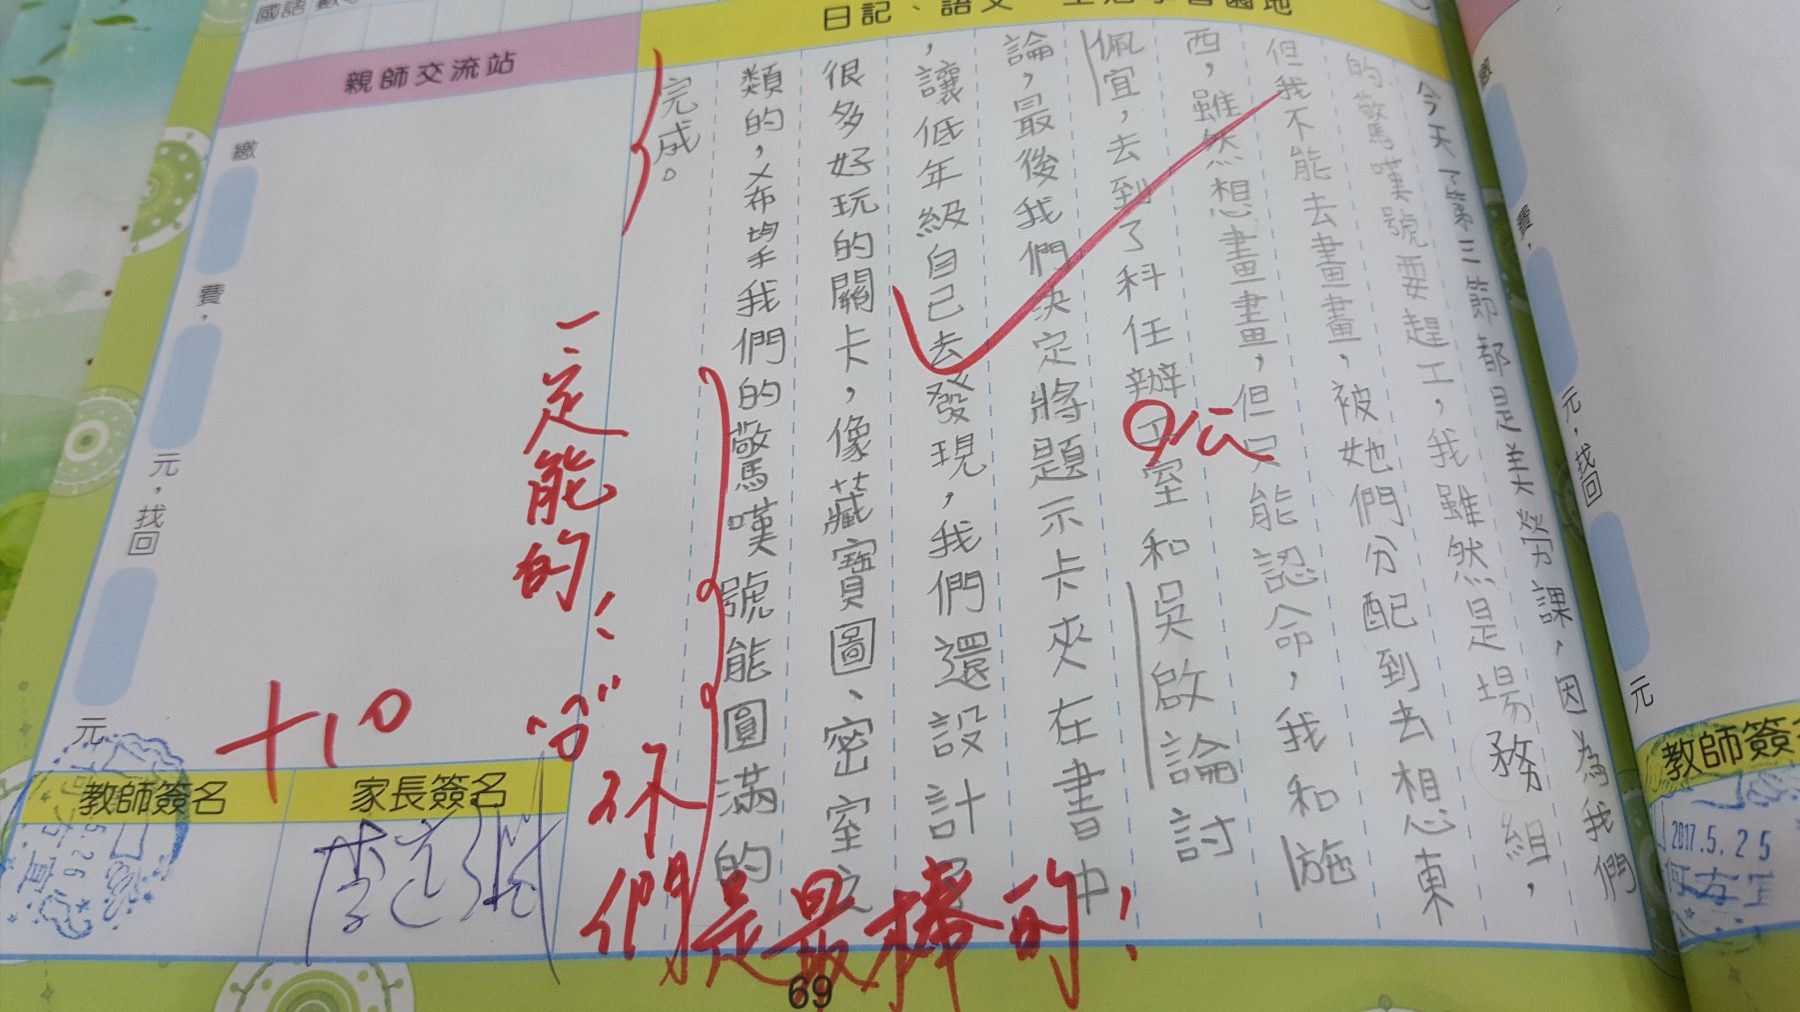 日記、語文
今天一~第三節都是美勞課,因為我們
的驚嘆號要趕工,我雖然是場務組,
但我不能去畫畫,被她們分配到去想東
西,雖然想畫畫,但只能認命,我和施
佩宜,去到了科任辦工室和吳啟論討
論,最後我們決定將題示卡夾在書中
,讓低年級自己去發現,我們還設計
很多好玩的關卡,像藏寶圖、密室
類的,希望我們的驚嘆號能圓滿的
完成。
公
一定能的!
你們是最棒的!
+10
親師交流站
繳
費,
元,找回
元
教師簽名
家長簽名
69
元,找回
元
教師簽
2017.5.25